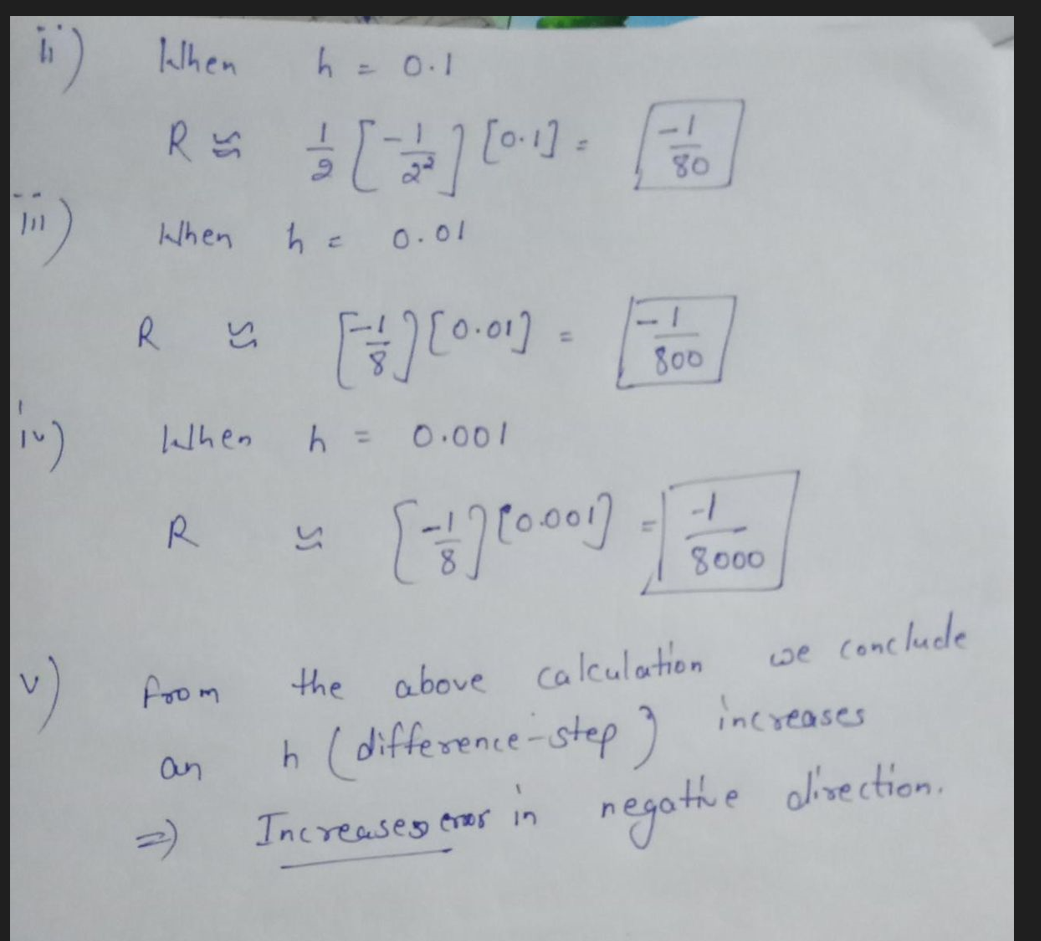 ii) When h = 0.1
R ≌ 1/2 [-1/2²] [0.1] = -1/80
iii) When h = 0.01
R ≌ [-1/8] [0.01] = -1/800
iv) When h = 0.001
R ≌ [-1/8] [0.001] = -1/8000
v) from the above calculation we conclude
an h (difference-step) increases
⇒ Increases error in negative direction.